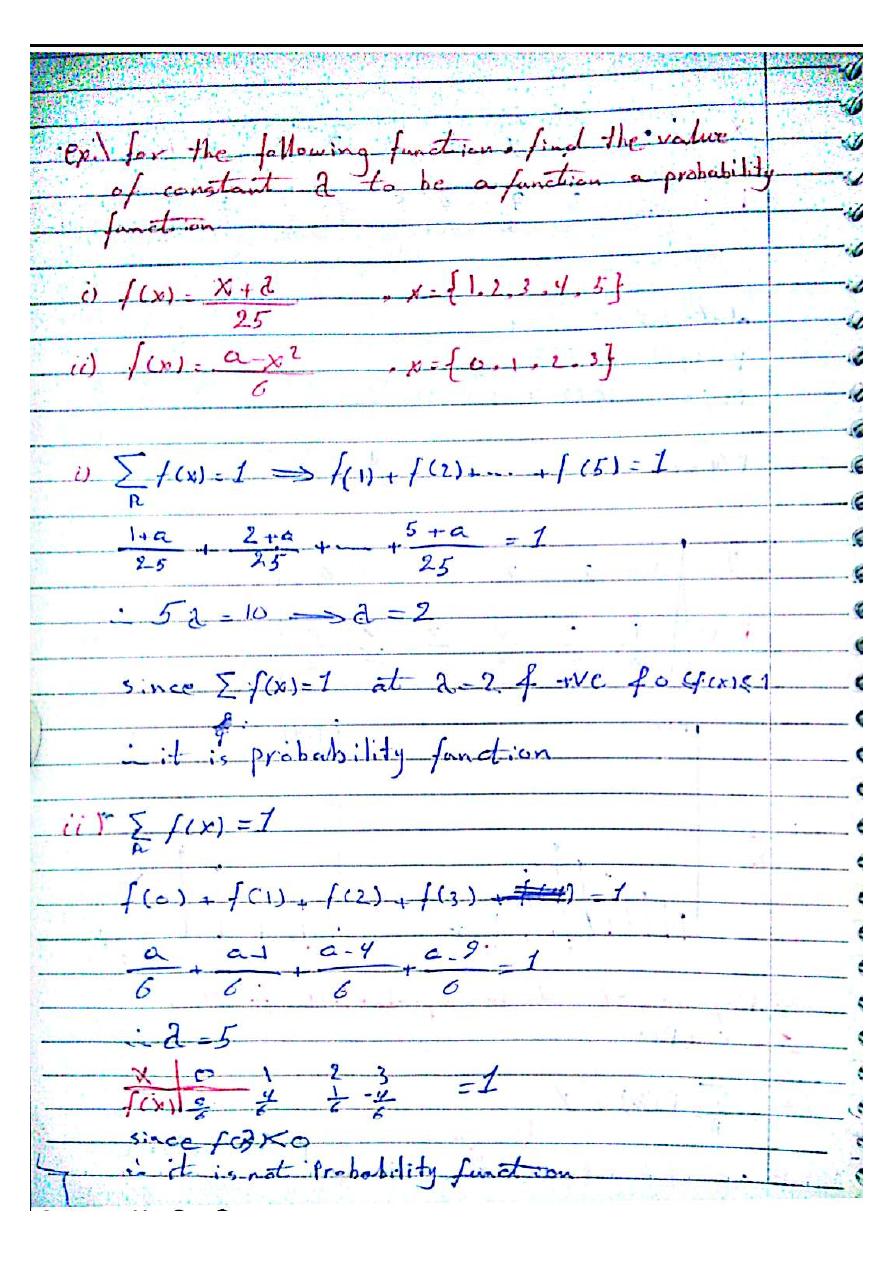 ex.\ for the following function, find the value
of constant a to be a function a probability
function
i) f(x) = x+a/25 , x={1,2,3,4,5}
ii) f(x) = a-x²/6 , x={0,1,2,3}
i) Σ_R f(x)=1 ⟹ f(1)+f(2)+....+f(5)=1
1+a/25 + 2+a/25 + .... + 5+a/25 = 1
∴ 5a=10 → a=2
since Σ f(x)=1 at a=2 f +ve 0≤f(x)≤1
∴ it is probability function
ii) Σ_R f(x)=1
f(0)+f(1)+f(2)+f(3) = 1
a/6 + a-1/6 + a-4/6 + a-9/6 = 1
∴ a=5
x | 0 1 2 3
f(x) | 5/6 4/6 1/6 -4/6 =1
since f(3)<0
∴ it is not Probability function